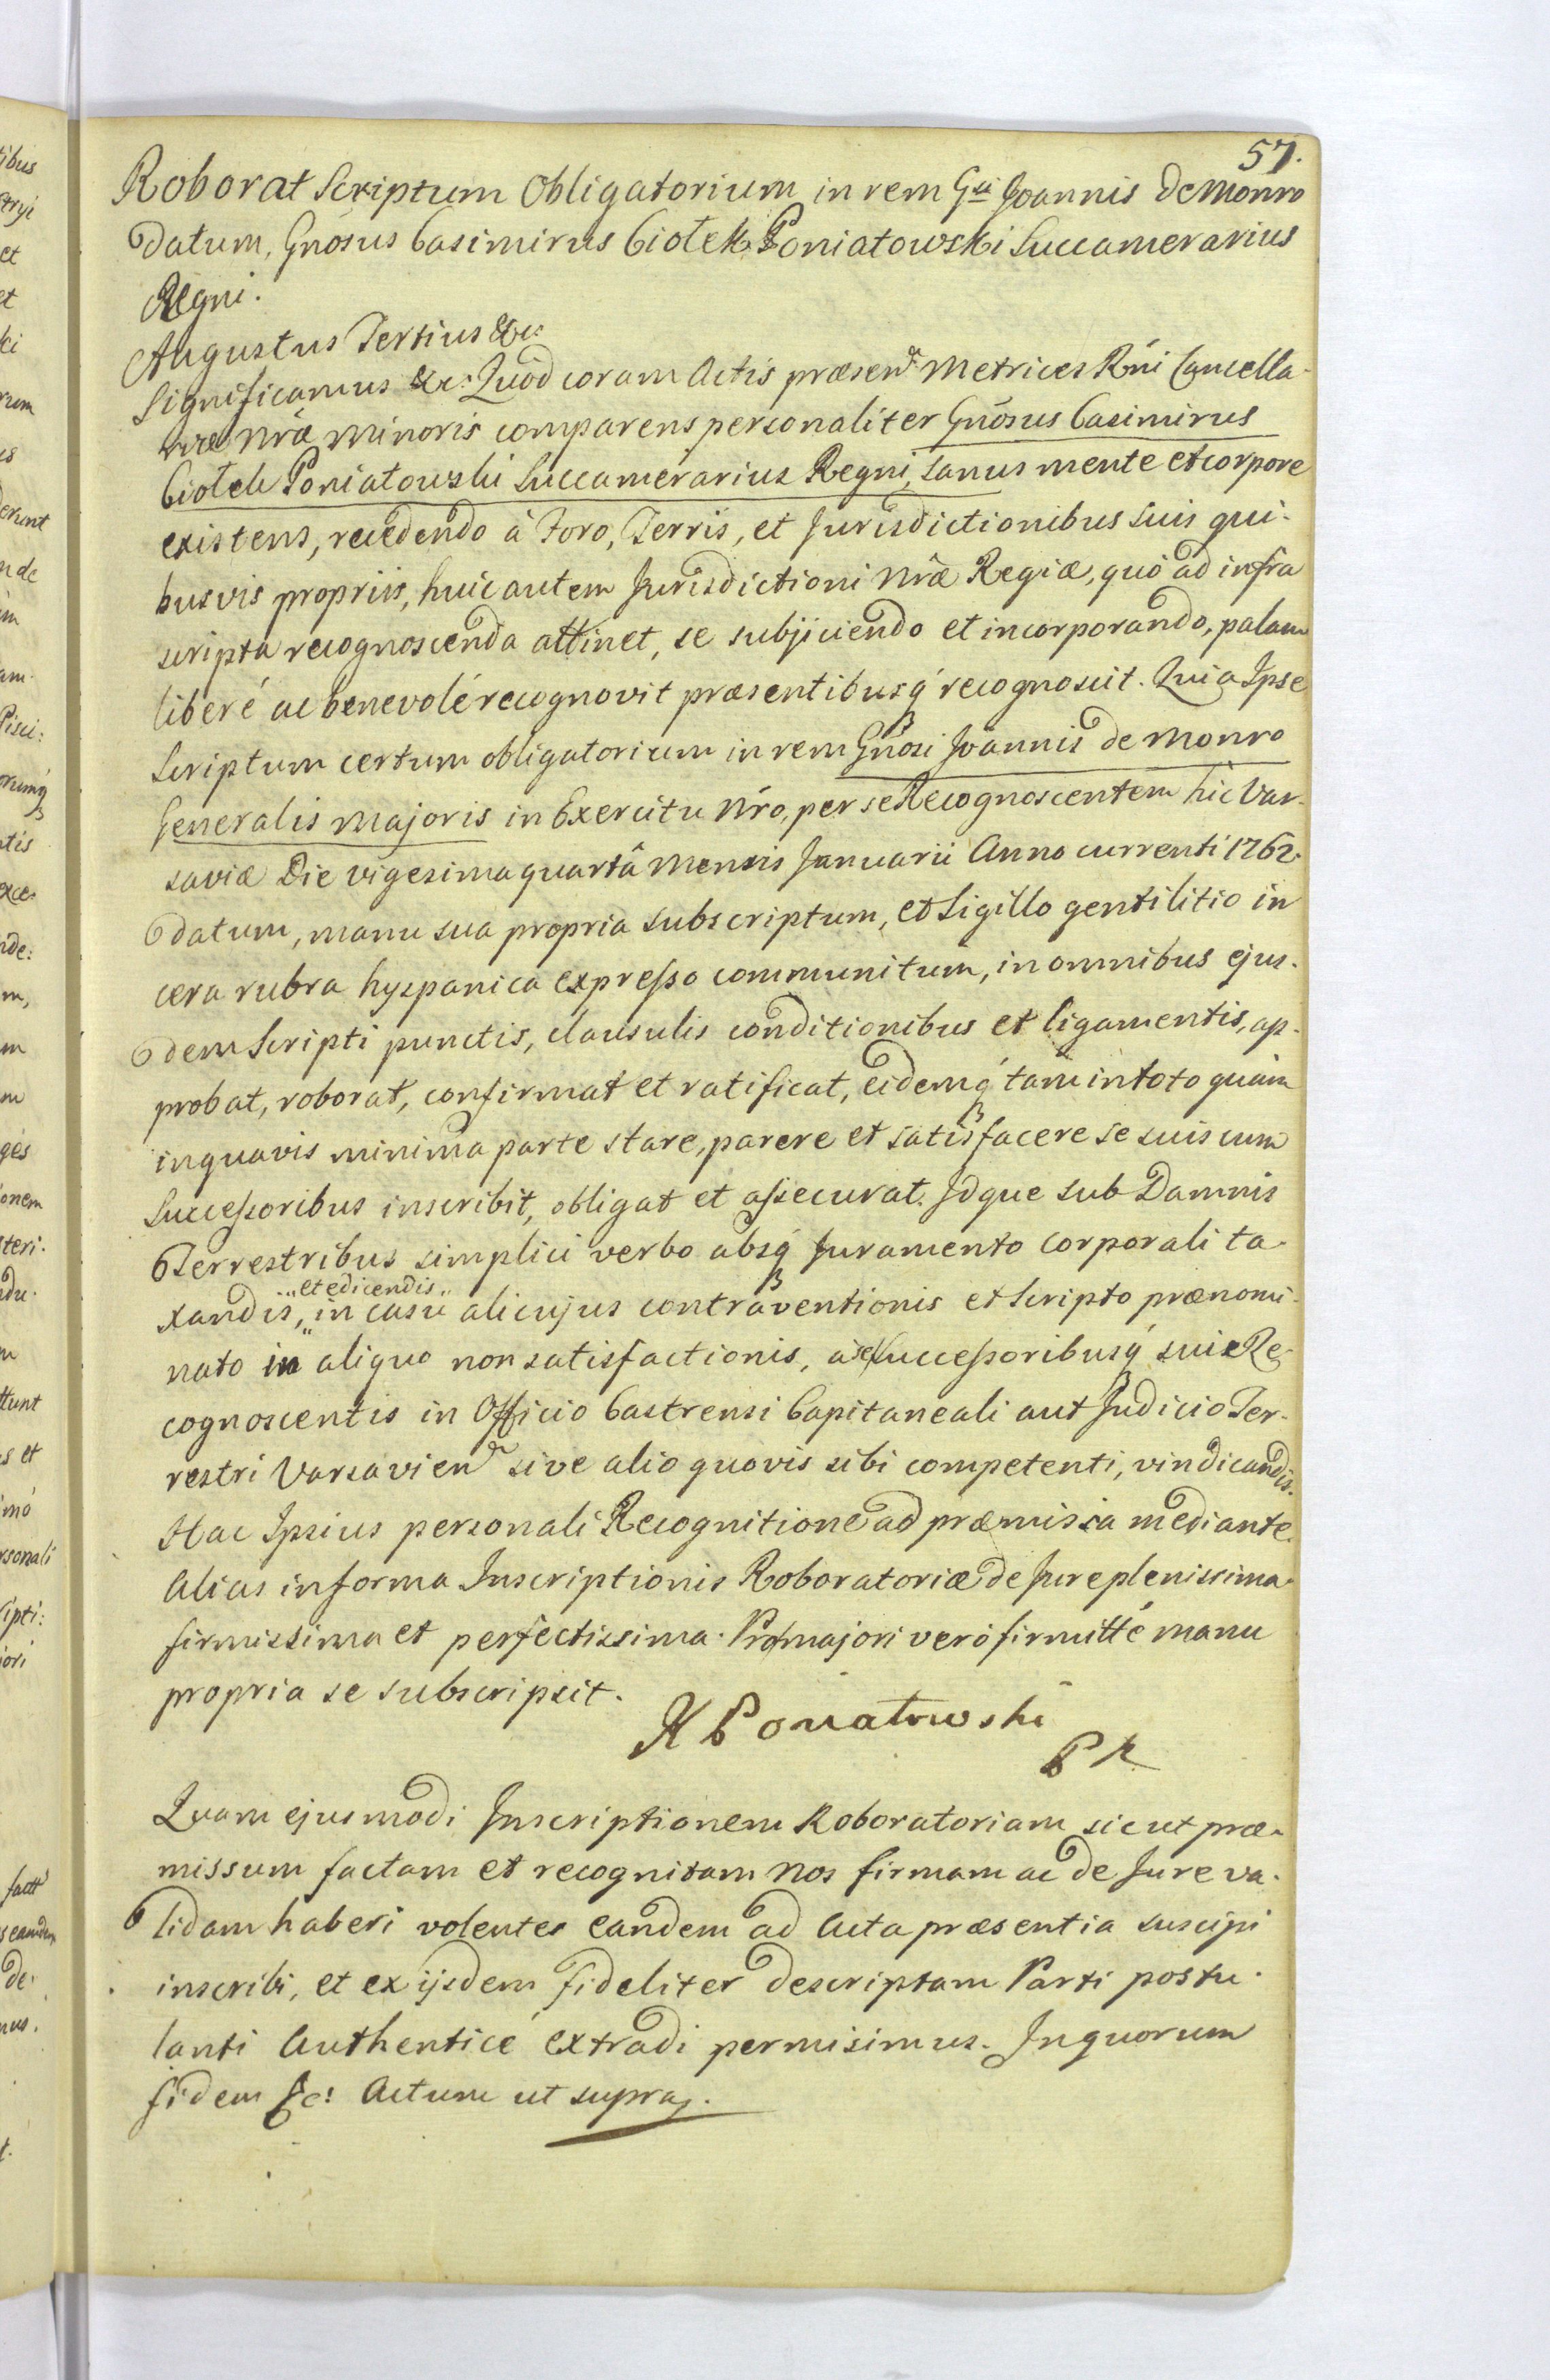 57.
Roborat Scriptum Obligatorium in rem Gsi Joannis de Monro
datum, Gnosus Casimirus Ciołek Poniatowski Succamerarius
Regni.
Augustus Tertius &c:
Significamus &c: Quod coram Actis præsen Metrices Rńi Cancella-
riæ Nræ Minoris comparens personaliter Gnosus Casimirus
Ciołek Poniatowski Succamerarius Regni, sanus mente et corpore
existens, recedendo à Foro, Terris, et Jurisdictionibus suis qui-
busvis propriis, huic autem Jurisdictioni Nræ Regiæ, quò ad infra
scripta recognoscenda attinet, se subjiciendo et incorporando, palam
liberé ac benevolé recognovit præsentibusq́ recognoscit. Quia Ipse
Scriptum certum obligatorium in rem Gnosi Joannis de Monro
Generalis Majoris in Exercitu Nro, per se Recognoscentem hic Var-
saviæ Die vigesima quartâ Mensis Januarii Anno currenti 1762.
datum, manu sua propria subscriptum, et Sigillo gentilitio in
cera rubra hyspanica expresso communitum, in omnibus ejus-
dem Scripti punctis, clausulis conditionibus et ligamentis, ap-
probat, roborat, confirmat et ratificat, eidemq́ tam in toto quàm
in quavis minima parte stare, parere et satisfacere se suis cum
Successoribus inscribit, obligat et assecurat. Idque sub Damnis
Terrestribus simplici verbo absq́ Juramento corporali ta-
"et edicendis"
xandis, in casu alicujus contraventionis et Scripto prænomi-
nato in aliquo non satisfactionis, a se Successoribusq́ suis Re-
cognoscentis in Officio Castrensi Capitaneali aut Judicio Ter-
restri Varsavien sive alio quovis sibi competenti, vindicandis.
Hac Ipsius personali Recognitione ad præmissa mediante.
Alias in forma Inscriptionis Roboratoriæ de Jure plenissima
firmissima et perfectissima. Pro majori veró firmitté manu
propria se subscripsit.
K Poniatowski
P K
Quam ejusmodi Inscriptionem Roboratoriam sic ut præ-
missum factam et recognitam Nos firmam ac de Jure va-
lidam haberi volentes eandem ad Acta præsentia suscipi
inscribi, et ex ijsdem fideliter descriptam Parti postu-
lanti Authenticé extradi permisimus. In quorum
fidem &c: Actum ut supra.